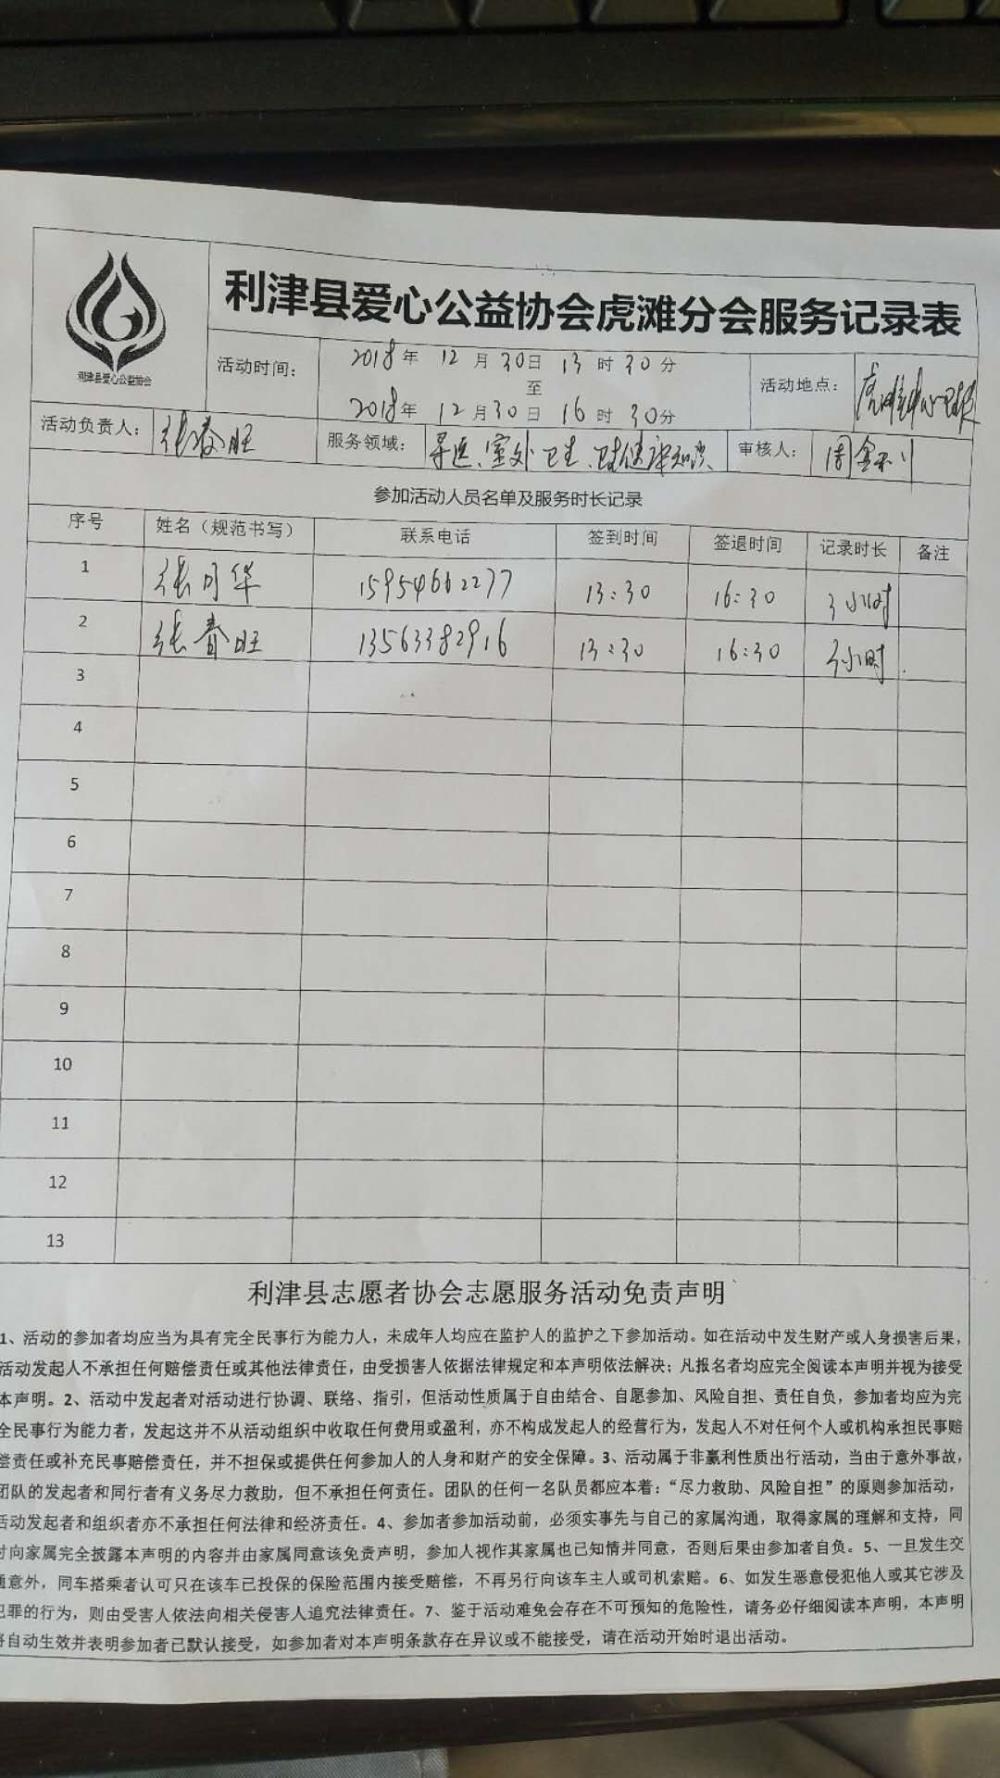 利津县爱心公益协会虎滩分会服务记录表
利津县爱心公益协会
活动时间: 2018年 12月30日 13时30分
至
2018年 12月30日 16时30分
活动地点:
活动负责人: 张春旺 服务领域: 导医、室外卫生、 健康知识 审核人: 周金
参加活动人员名单及服务时长记录
序号 姓名（规范书写） 联系电话 签到时间 签退时间 记录时长 备注
1 张月华 15954662277 13:30 16:30 3小时
2 张春旺 13563382916 13:30 16:30 3小时
3
4
5
6
7
8
9
10
11
12
13
利津县志愿者协会志愿服务活动免责声明
1、活动的参加者均应当为具有完全民事行为能力人，未成年人均应在监护人的监护之下参加活动。如在活动中发生财产或人身损害后果，
活动发起人不承担任何赔偿责任或其他法律责任，由受损害人依据法律规定和本声明依法解决；凡报名者均应完全阅读本声明并视为接受
本声明。2、活动中发起者对活动进行协调、联络、指引，但活动性质属于自由结合、自愿参加、风险自担、责任自负，参加者均应为完
全民事行为能力者，发起这并不从活动组织中收取任何费用或盈利，亦不构成发起人的经营行为，发起人不对任何个人或机构承担民事赔
偿责任或补充民事赔偿责任，并不担保或提供任何参加人的人身和财产的安全保障。3、活动属于非赢利性质出行活动，当由于意外事故，
团队的发起者和同行者有义务尽力救助，但不承担任何责任。团队的任何一名队员都应本着：“尽力救助、风险自担”的原则参加活动，
活动发起者和组织者亦不承担任何法律和经济责任。4、参加者参加活动前，必须实事先与自己的家属沟通，取得家属的理解和支持，同
时向家属完全披露本声明的内容并由家属同意该免责声明，参加人视作其家属也已知情并同意，否则后果由参加者自负。5、一旦发生交
通意外，同车搭乘者认可只在该车已投保的保险范围内接受赔偿，不再另行向该车主人或司机索赔。6、如发生恶意侵犯他人或其它涉及
犯罪的行为，则由受害人依法向相关侵害人追究法律责任。7、鉴于活动难免会存在不可预知的危险性，请务必仔细阅读本声明，本声明
将自动生效并表明参加者已默认接受，如参加者对本声明条款存在异议或不能接受，请在活动开始时退出活动。